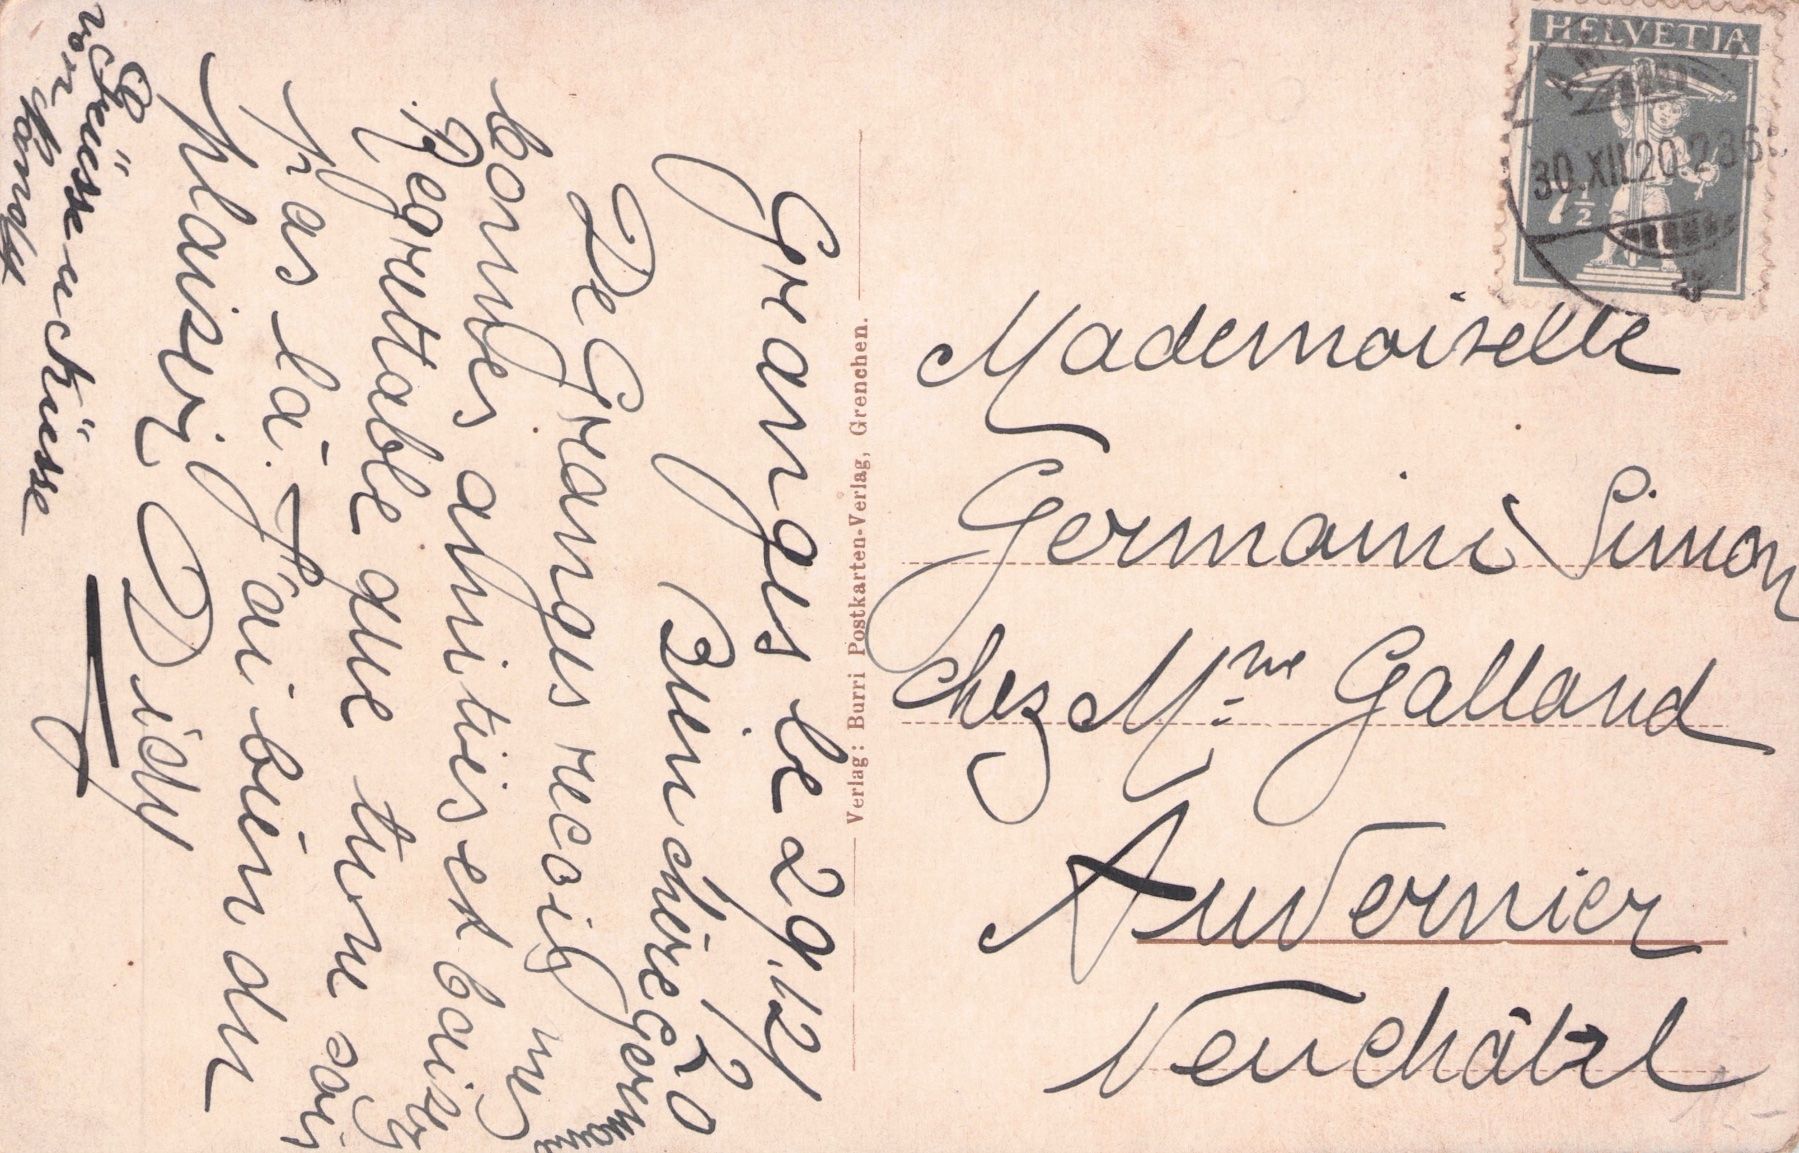 Granges le 29/12/20
Bien chère Germaine
De Granges recois mes
bonnes amitiés et baisers
Regrettable que tu ne sois
pas là. J'ai bien du
plaisir, Didy
Grüsse u. Küsse
von
Verlag: Burri Postkarten-Verlag, Grenchen.
HELVETIA
7½
30.XII.20
Mademoiselle
Germaine Simon
chez Mme Galland
Auvernier
Neuchâtel